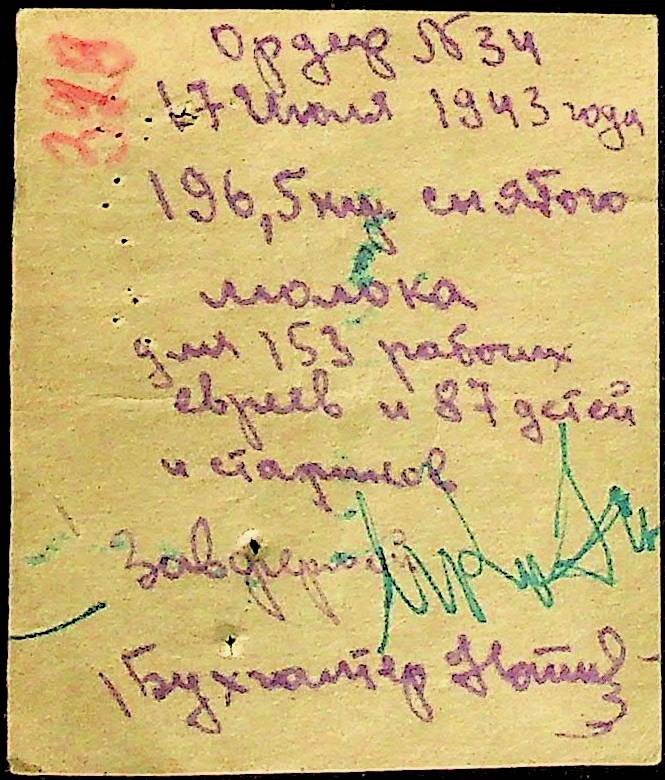 Ордер N 34
17 Июля 1943 года
196,5 кц снятого
молока
для 153 рабочих
евреев и 87 детей
и стариков
Завфермой
Бухгалтер